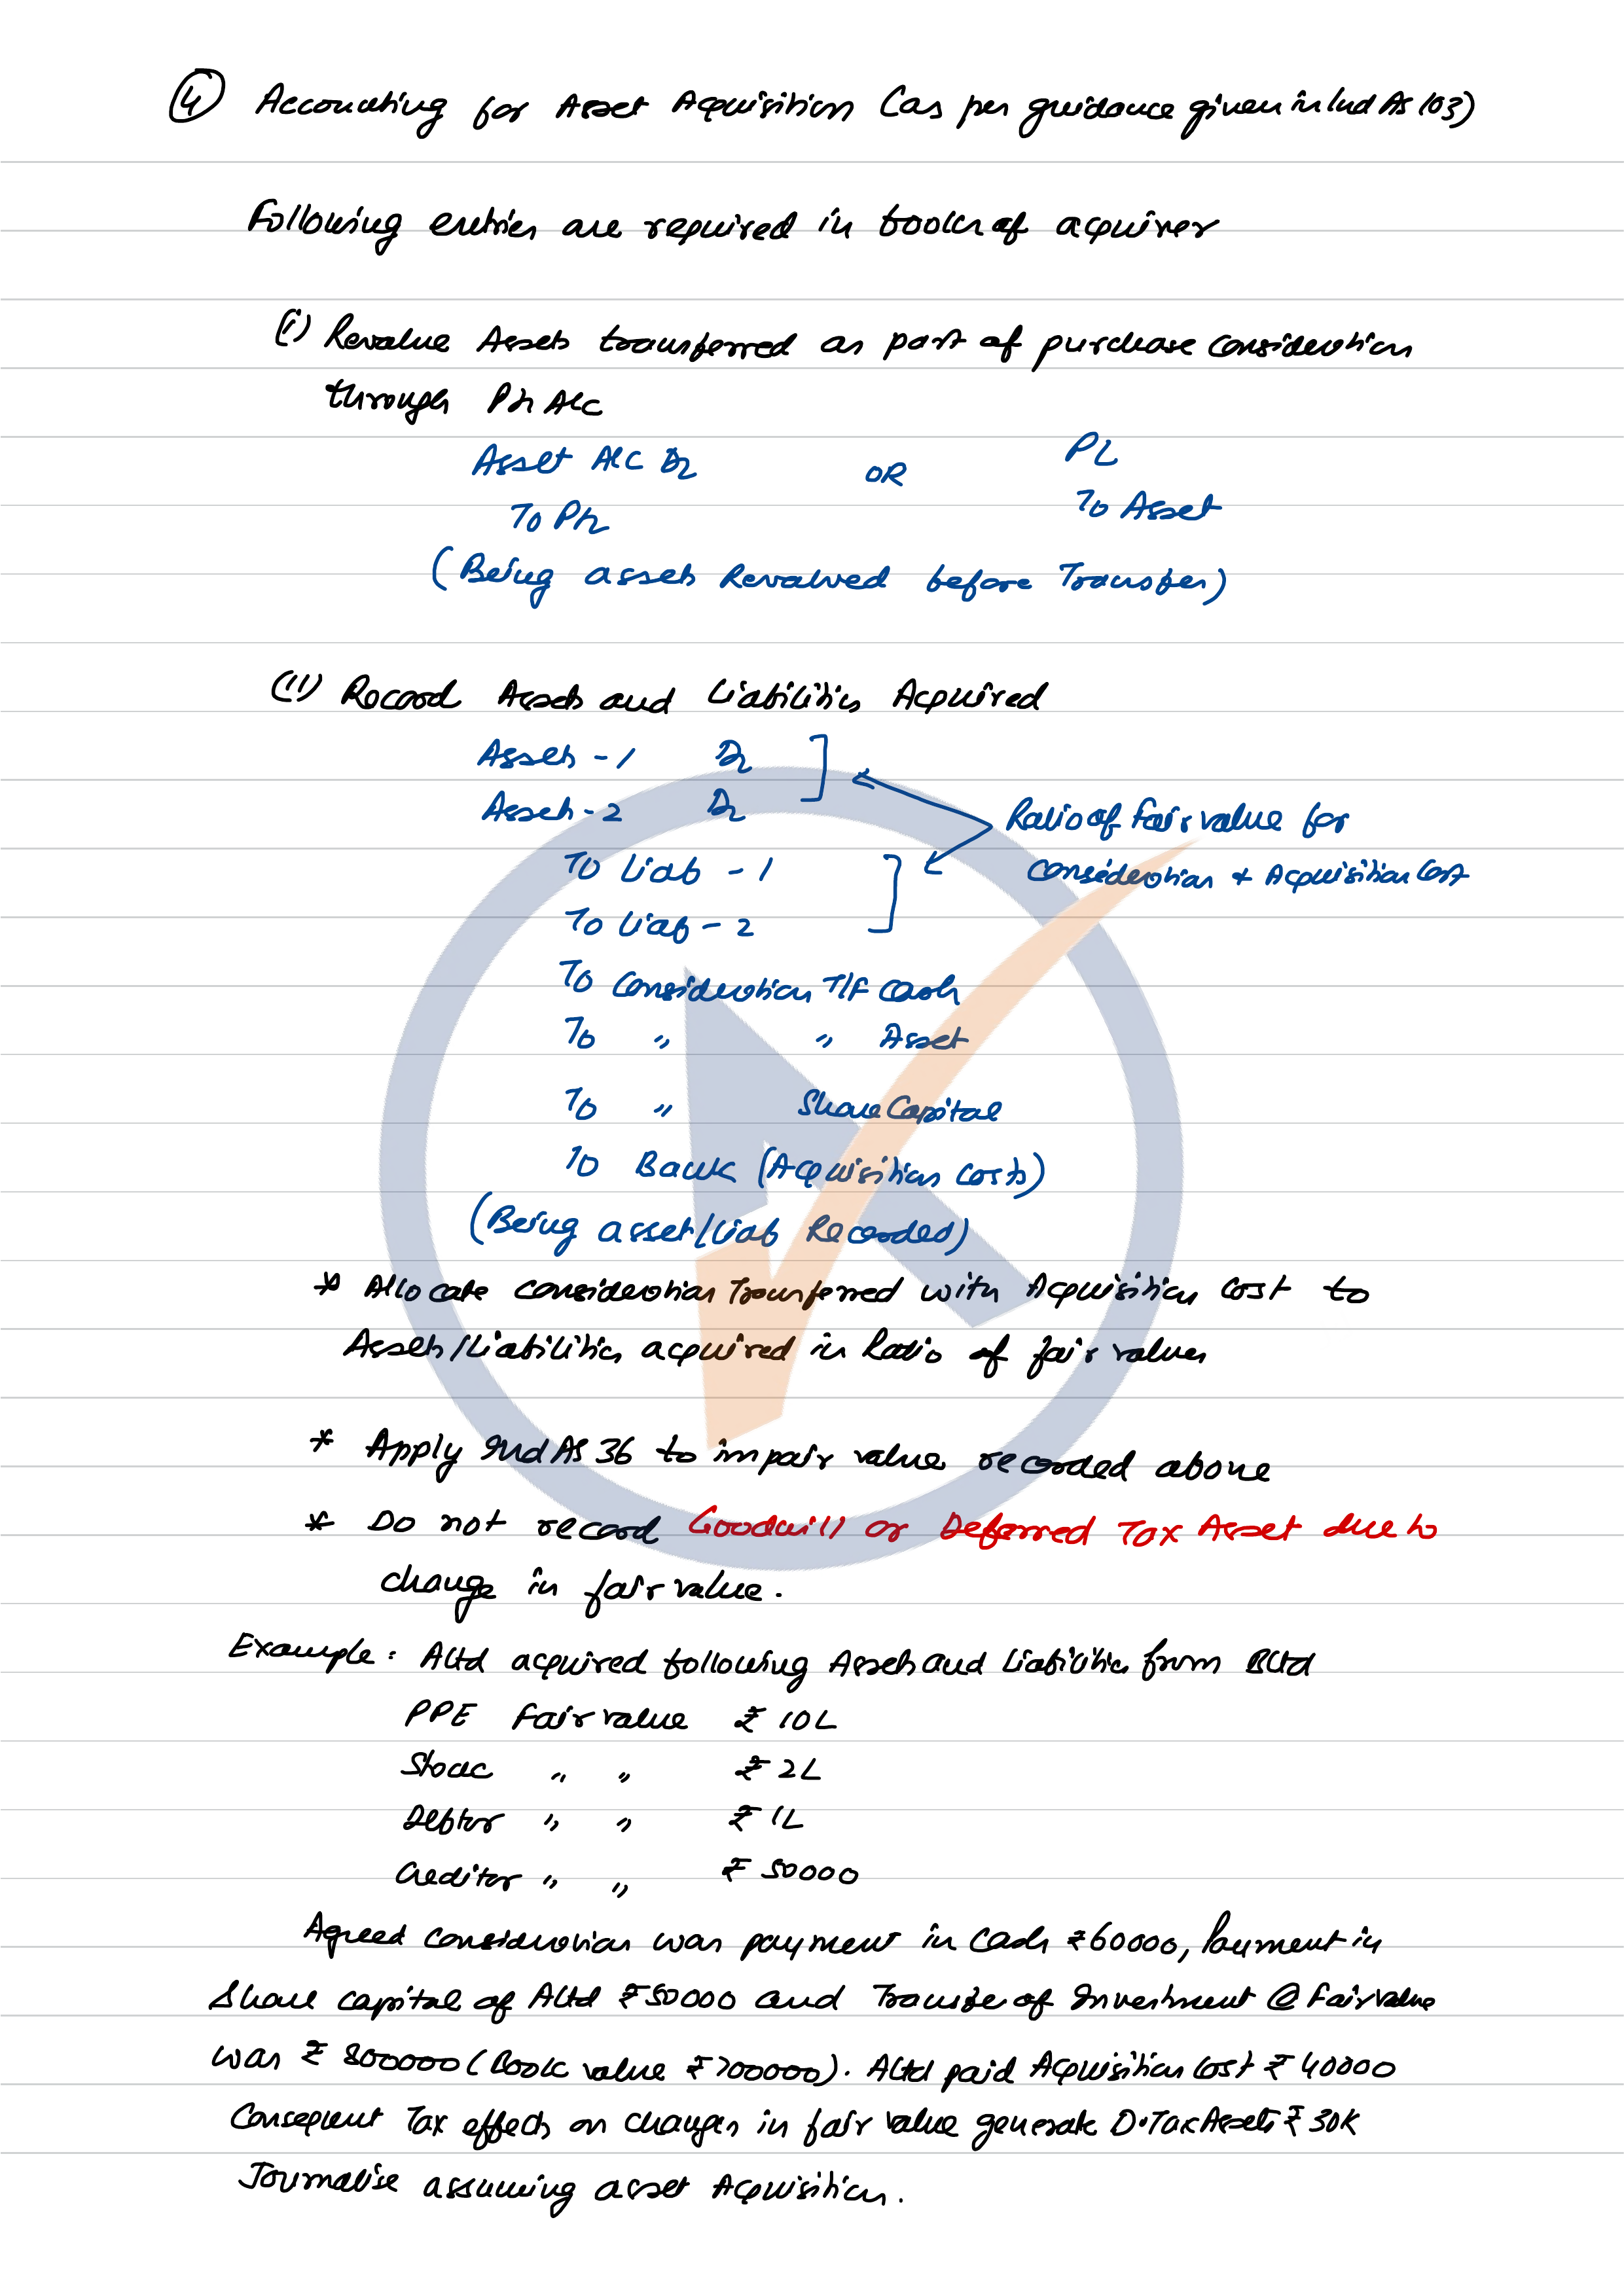 ④ Accounting for Asset Acquisition (as per guidance given in Ind AS 103)
Following entries are required in books of acquirer
(i) Revalue Assets transferred as part of purchase consideration
through P/L A/c
Asset A/C Dr OR PL
To P/L To Asset
(Being assets Revalued before Transfer)
(ii) Record Assets and Liabilities Acquired
Assets - 1 Dr
Assets - 2 Dr
Ratio of fair value for
To Liab - 1 consideration + Acquisition Cost
To Liab - 2
To Consideration T/F Cash
To " " Asset
To " Share Capital
To Bank (Acquisition Costs)
(Being asset/Liab Recorded)
* Allocate consideration Transferred with Acquisition cost to
Assets/Liabilities acquired in Ratio of fair values
* Apply Ind AS 36 to impair value recorded above
* Do not record Goodwill or Deferred Tax Asset due to
change in fair value.
Example: A Ltd acquired following Assets and Liabilities from B Ltd
PPE Fair value ₹ 10L
Stock " " ₹ 2L
Debtor " " ₹ 1L
Creditor " " ₹ 50000
Agreed consideration was payment in Cash ₹60000, Payment in
Share capital of A Ltd ₹50000 and Transfer of Investment @ Fair value
was ₹ 800000 (Book value ₹700000). A Ltd paid Acquisition Cost ₹ 40000
Consequent Tax effects on changes in fair value generate D.Tax Assets ₹ 30K
Journalise assuming asset Acquisition.